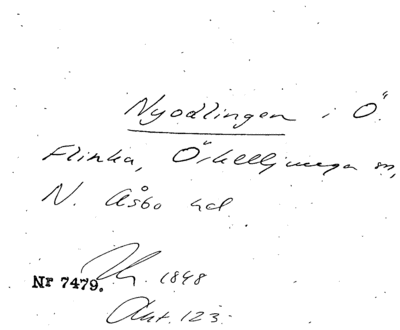 Nyodlingen i Ö.
Flinka, Örkelljunga sn,
N. Åsbo hd
Nr 7479. 1848
Akt. 123.